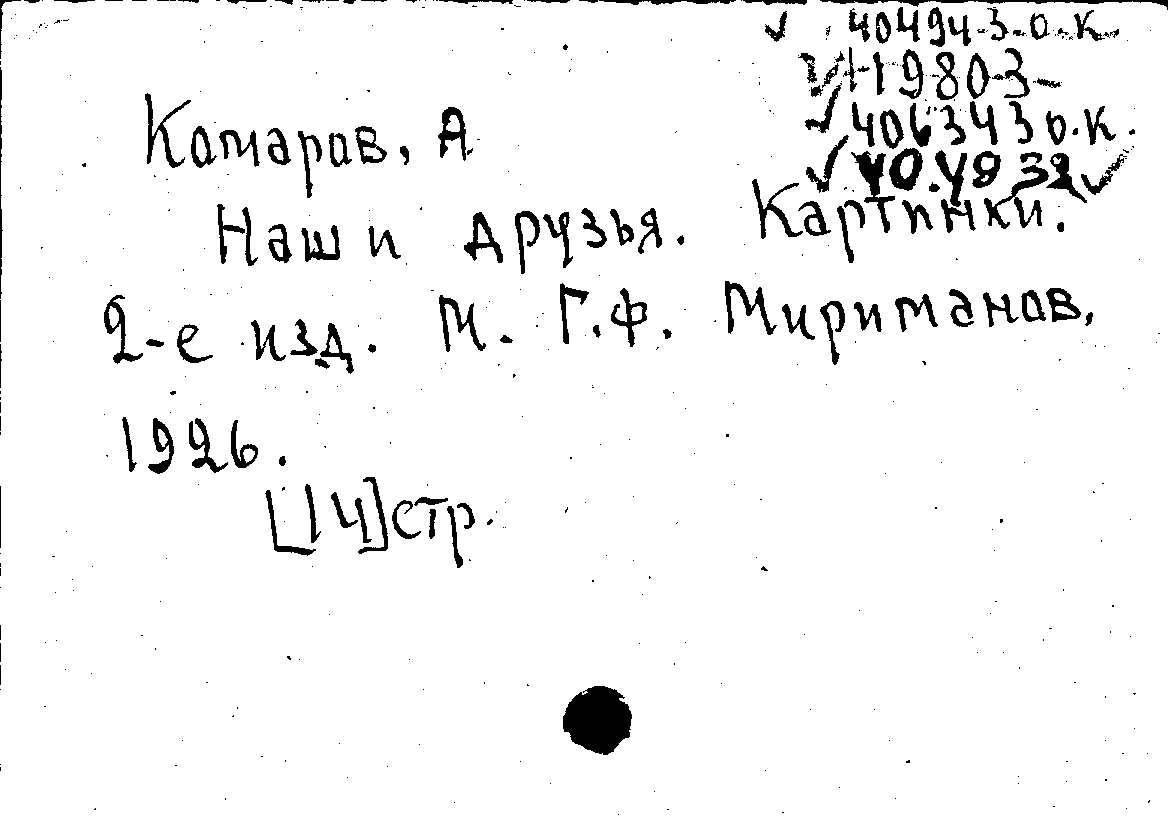 ✓ 40494-3-о.к
✓ 119803-
✓ 4063430.к.
✓ 40.49 32 ✓
Комаров, А
Наши друзья. Картинки.
2-е изд. М. Г.Ф. Мириманов,
1926.
[14]стр.